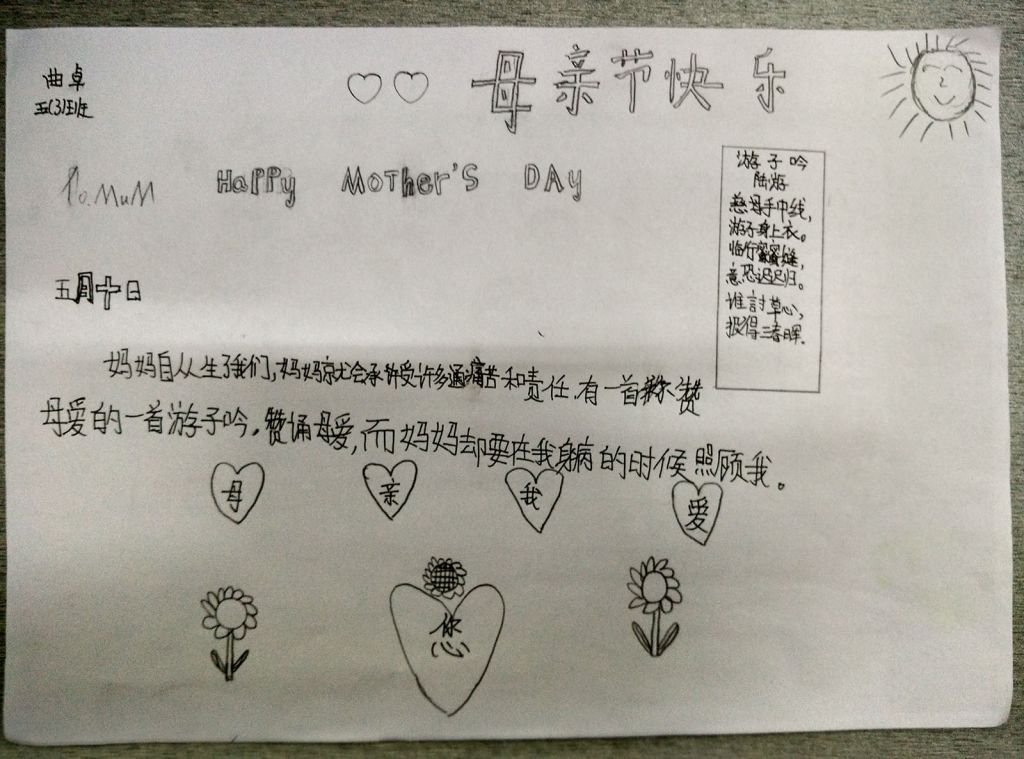 曲卓
五(3)班
母亲节快乐
To.MuM
HaPPy MoTher'S DAy
游子吟
陆游
慈母手中线,
游子身上衣。
临行蜜蜜缝,
意恐迟迟归。
谁討草心,
报得三春晖.
五月十日
妈妈自从生了我们,妈妈就会承受许多通痛苦和责任.有一首 赞
母爱的一首游子吟,赞诵母爱,而妈妈却要在我身病的时候照顾我。
母 亲 我 爱
您